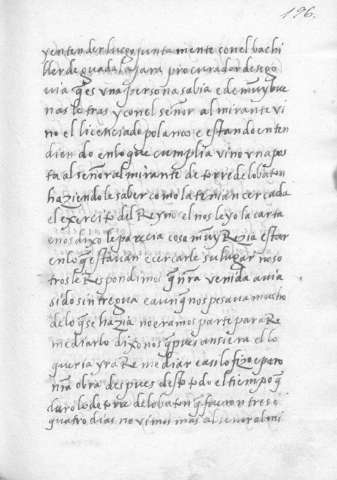 196.
y entender luego juntamente con el bachi
ller de guadalajara procurador de sego
via q̃ es una persona sabia e de muy bue
nas letras y con el señor almirante vi
no el licenciado polanco e estando enten
diendo en lo que cumplia vino una pos
ta al señor almirante de torre de lobaton
haziendole saber como la tenian cercada
el exercito del Reyno el nos leyo la carta
e nos dixo le parecia cosa muy Rezia estar
en lo q̃ estavan e cercarle su lugar noso
tros le Respondimos q̃ nr̃a venida avia
sido sin tregua e aunq̃ nos pesava mucho
de lo q̃ se hazia no eramos parte para Re
mediarlo dixo nos q̃ pues ansi era el lo
queria yr a Remediar e asi lo fizo e paro
nr̃a obra despues desto todo el tiempo q̃
duro lo de torre de lobaton q̃ fueron tres o
quatro dias no vimos mas al señor almi